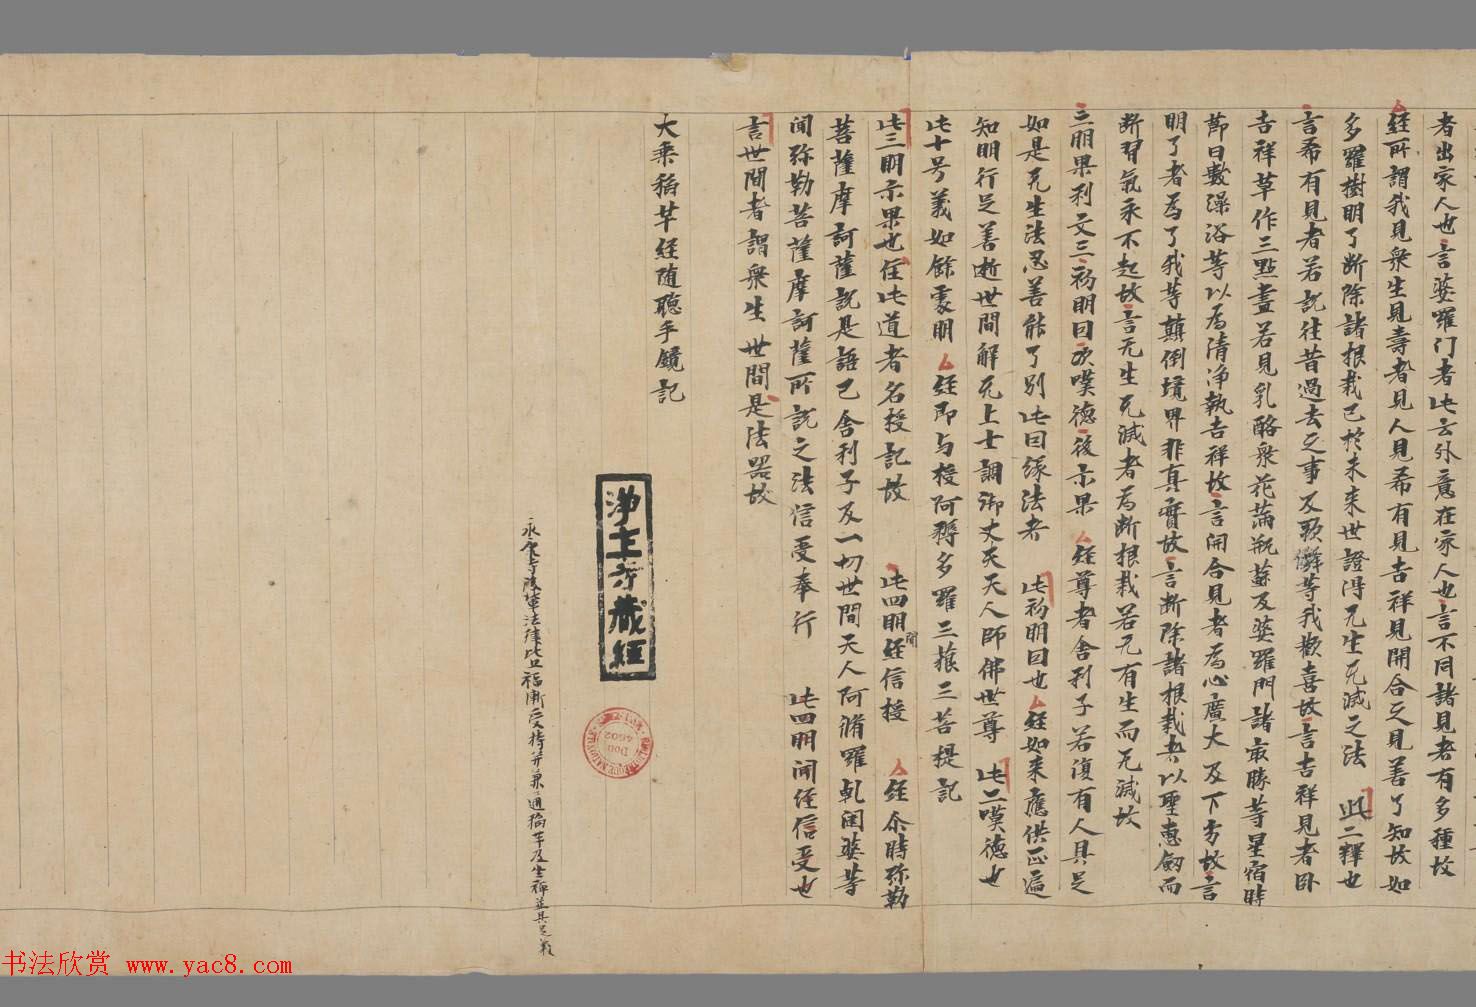 者出家人也言婆羅门者此云外意在家人也言不同諸見者有多種故
經所謂我見衆生見壽者見人見希有見吉祥見開合之見善了知故如
多羅樹明了断除諸根栽已於未来世證得无生无滅之法 此二釋也
言希有見者若説往昔過去之事及歌儛等我歡喜故言吉祥見者卧
吉祥草作三點畫若見乳酪衆花滿瓶蘇及婆羅門諸最勝等星宿時
節日數澡浴等以為清浄執吉祥故言開合見者為心廣大及下劣故言
明了者為了我等顛倒境界非真實故言断除諸根栽者以聖惠劒而
断習氣永不起故言无生无滅者為断根栽若无有生而无滅故
三明果利文三初明曰次嘆德後示果 經尊者舍利子若復有人具足
如是无生法忍善能了别此曰緣法者 此初明曰也 經如来應供正遍
知明行足善逝世間解无上士調御丈夫天人師佛世尊 此二嘆德也
此十号義如餘處明 經即与授阿耨多羅三藐三菩提記
此三明示果也住此道者名授記故 此四明聞經信授 經尒時弥勒
菩薩摩訶薩説是語已舍利子及一切世間天人阿脩羅乹闼婆等
聞弥勒菩薩摩訶薩所説之法信受奉行 此四明聞經信受也
言世間者謂衆生世間是法器故
大乘稻芉經随聽手鏡記
淨土寺藏經
永康寺 法律 福漸 受持 兼通稻芉及 并具足
Don
4502
书法欣赏 www.yac8.com